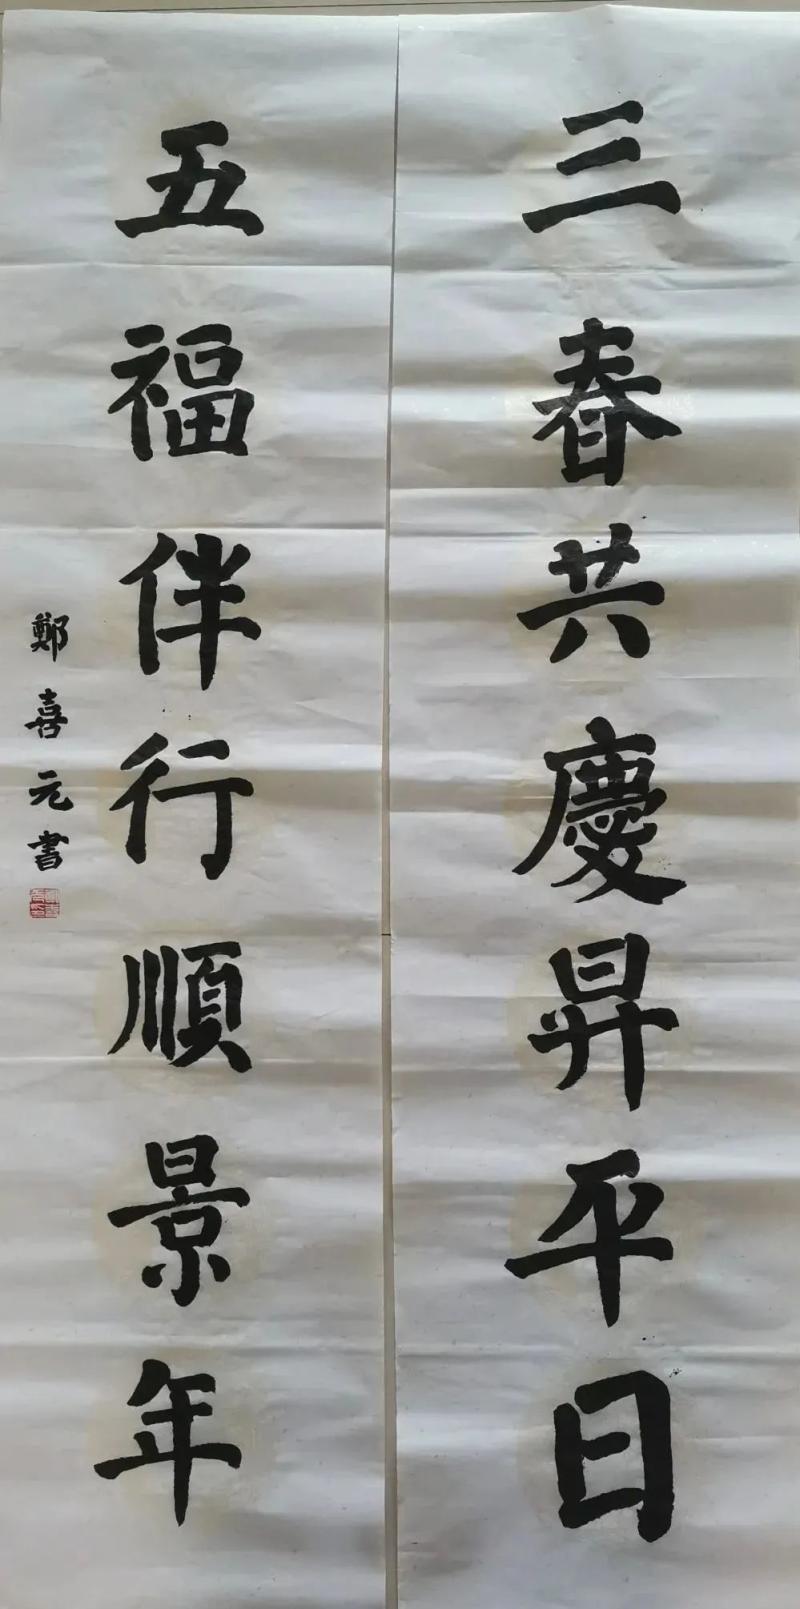 三春共慶昇平日
五福伴行順景年
鄭喜元書